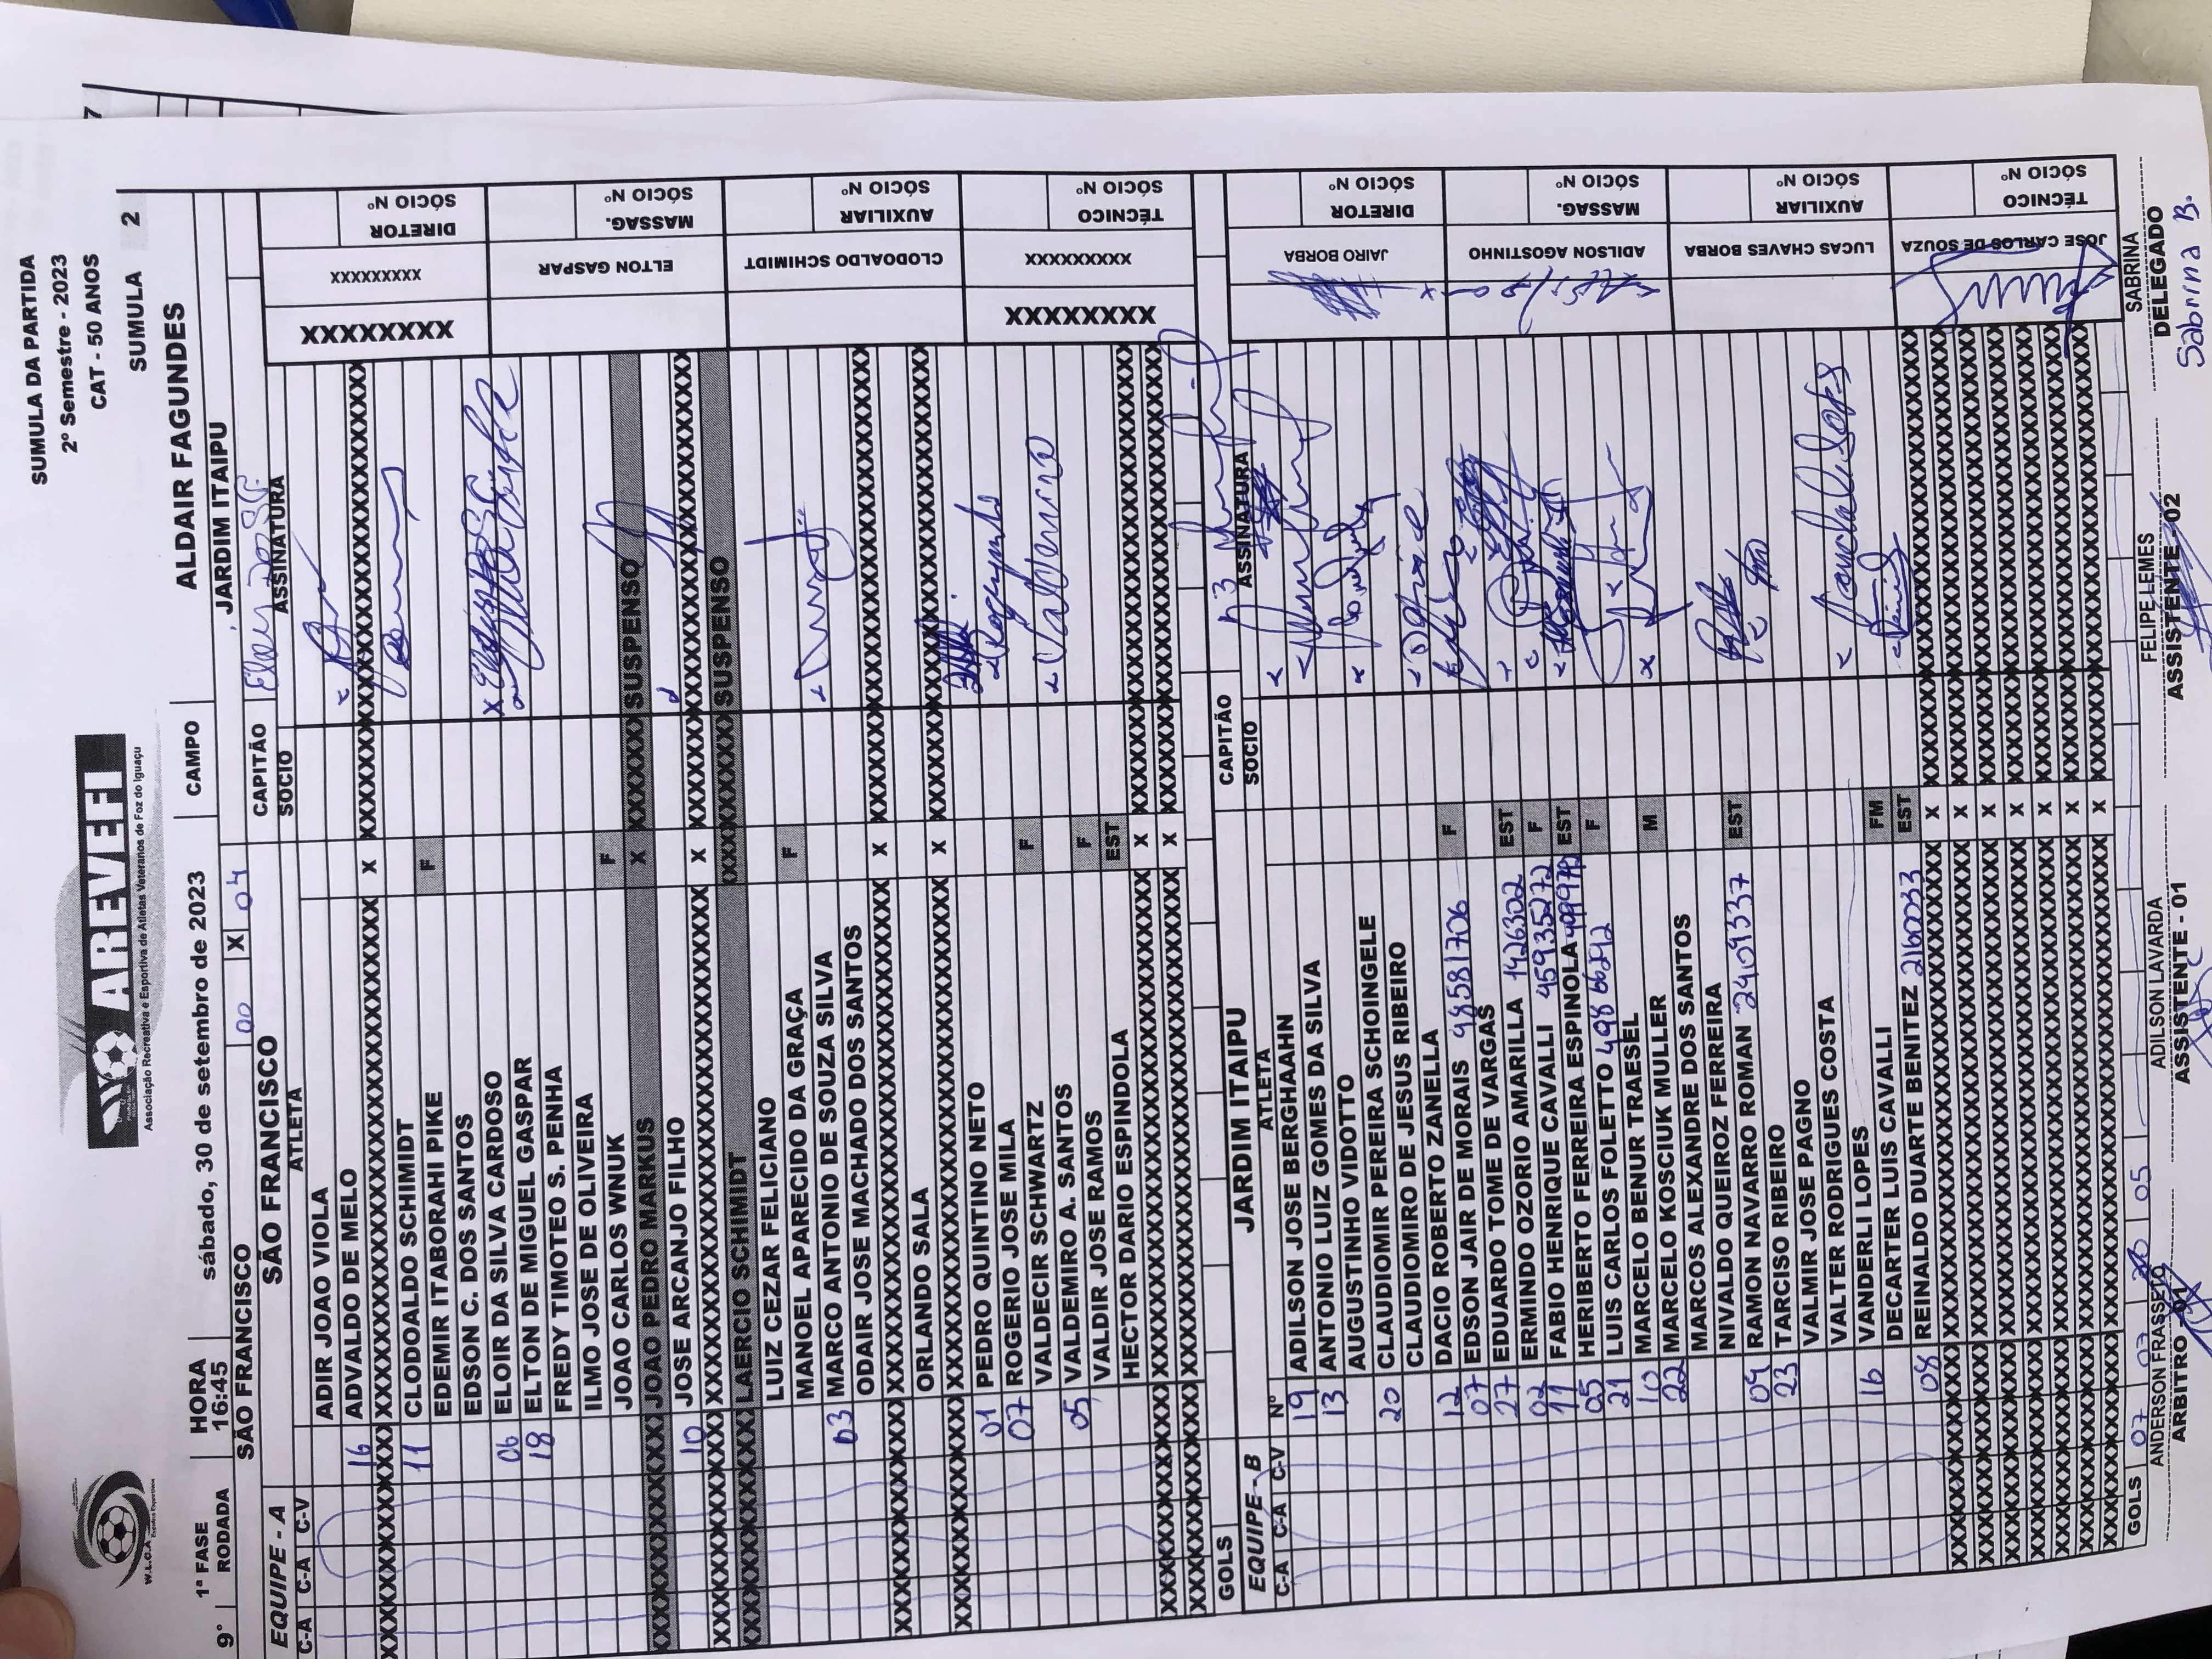 7
SUMULA DA PARTIDA
2º Semestre - 2023
CAT - 50 ANOS
SUMULA 2
W.L.C.A
AREVEFI
Associação Recreativa e Esportiva de Atletas Veteranos de Foz do Iguaçu
1ª FASE HORA sábado, 30 de setembro de 2023 CAMPO ALDAIR FAGUNDES
9° RODADA 16:45
SÃO FRANCISCO 00 X 04 JARDIM ITAIPU
EQUIPE - A SÃO FRANCISCO CAPITÃO
C-A C-A C-V ATLETA SOCIO ASSINATURA
ADIR JOAO VIOLA
16 ADVALDO DE MELO
XXXXXXXX X XXXXXXXX
11 CLODOALDO SCHMIDT
EDEMIR ITABORAHI PIKE F
EDSON C. DOS SANTOS
06 ELOIR DA SILVA CARDOSO
18 ELTON DE MIGUEL GASPAR
FREDY TIMOTEO S. PENHA
ILMO JOSE DE OLIVEIRA
JOAO CARLOS WNUK F
JOAO PEDRO MARKUS X SUSPENSO
10 JOSE ARCANJO FILHO
XXXXXXXX X XXXXXXXX
LAERCIO SCHIMIDT SUSPENSO
LUIZ CEZAR FELICIANO
MANOEL APARECIDO DA GRAÇA F
03 MARCO ANTONIO DE SOUZA SILVA
ODAIR JOSE MACHADO DOS SANTOS
XXXXXXXX X XXXXXXXX
ORLANDO SALA
XXXXXXXX X XXXXXXXX
01 PEDRO QUINTINO NETO
07 ROGERIO JOSE MILA
VALDECIR SCHWARTZ F
05 VALDEMIRO A. SANTOS
VALDIR JOSE RAMOS F
HECTOR DARIO ESPINDOLA EST
XXXXXXXX X XXXXXXXX
XXXXXXXX X XXXXXXXX
GOLS
XXXXXXXX XXXXXXXXX DIRETOR
SÓCIO Nº
ELTON GASPAR MASSAG.
SÓCIO Nº
CLODOALDO SCHIMIDT AUXILIAR
SÓCIO Nº
XXXXXXXX XXXXXXXXX TÉCNICO
SÓCIO Nº
EQUIPE - B JARDIM ITAIPU CAPITÃO
C-A C-A C-V Nº ATLETA SOCIO ASSINATURA
19 ADILSON JOSE BERGHAHN
13 ANTONIO LUIZ GOMES DA SILVA
AUGUSTINHO VIDOTTO
20 CLAUDIOMIR PEREIRA SCHOINGELE
CLAUDIOMIRO DE JESUS RIBEIRO
12 DACIO ROBERTO ZANELLA
07 EDSON JAIR DE MORAIS 98581706 F
27 EDUARDO TOME DE VARGAS
02 ERMINDO OZORIO AMARILLA 1426302 EST
11 FABIO HENRIQUE CAVALLI 45935272 F
05 HERIBERTO FERREIRA ESPINOLA EST
21 LUIS CARLOS FOLETTO 49866242 F
10 MARCELO BENUR TRAESEL
22 MARCELO KOSCIUK MULLER M
MARCOS ALEXANDRE DOS SANTOS
NIVALDO QUEIROZ FERREIRA
09 RAMON NAVARRO ROMAN 2409337 EST
23 TARCISO RIBEIRO
VALMIR JOSE PAGNO
VALTER RODRIGUES COSTA
16 VANDERLI LOPES
DECARTER LUIS CAVALLI FM
08 REINALDO DUARTE BENITEZ 2160033 EST
XXXXXXXX X XXXXXXXX
XXXXXXXX X XXXXXXXX
XXXXXXXX X XXXXXXXX
XXXXXXXX X XXXXXXXX
XXXXXXXX X XXXXXXXX
XXXXXXXX X XXXXXXXX
XXXXXXXX X XXXXXXXX
GOLS 07 07 05
JAIRO BORBA DIRETOR
SÓCIO Nº
ADILSON AGOSTINHO MASSAG.
SÓCIO Nº
LUCAS CHAVES BORBA AUXILIAR
SÓCIO Nº
JOSE CARLOS DE SOUZA TÉCNICO
SÓCIO Nº
ANDERSON FRASSETO ADILSON LAVARDA FELIPE LEMES SABRINA
ARBITRO - 01 ASSISTENTE - 01 ASSISTENTE - 02 DELEGADO
Sabrina B.